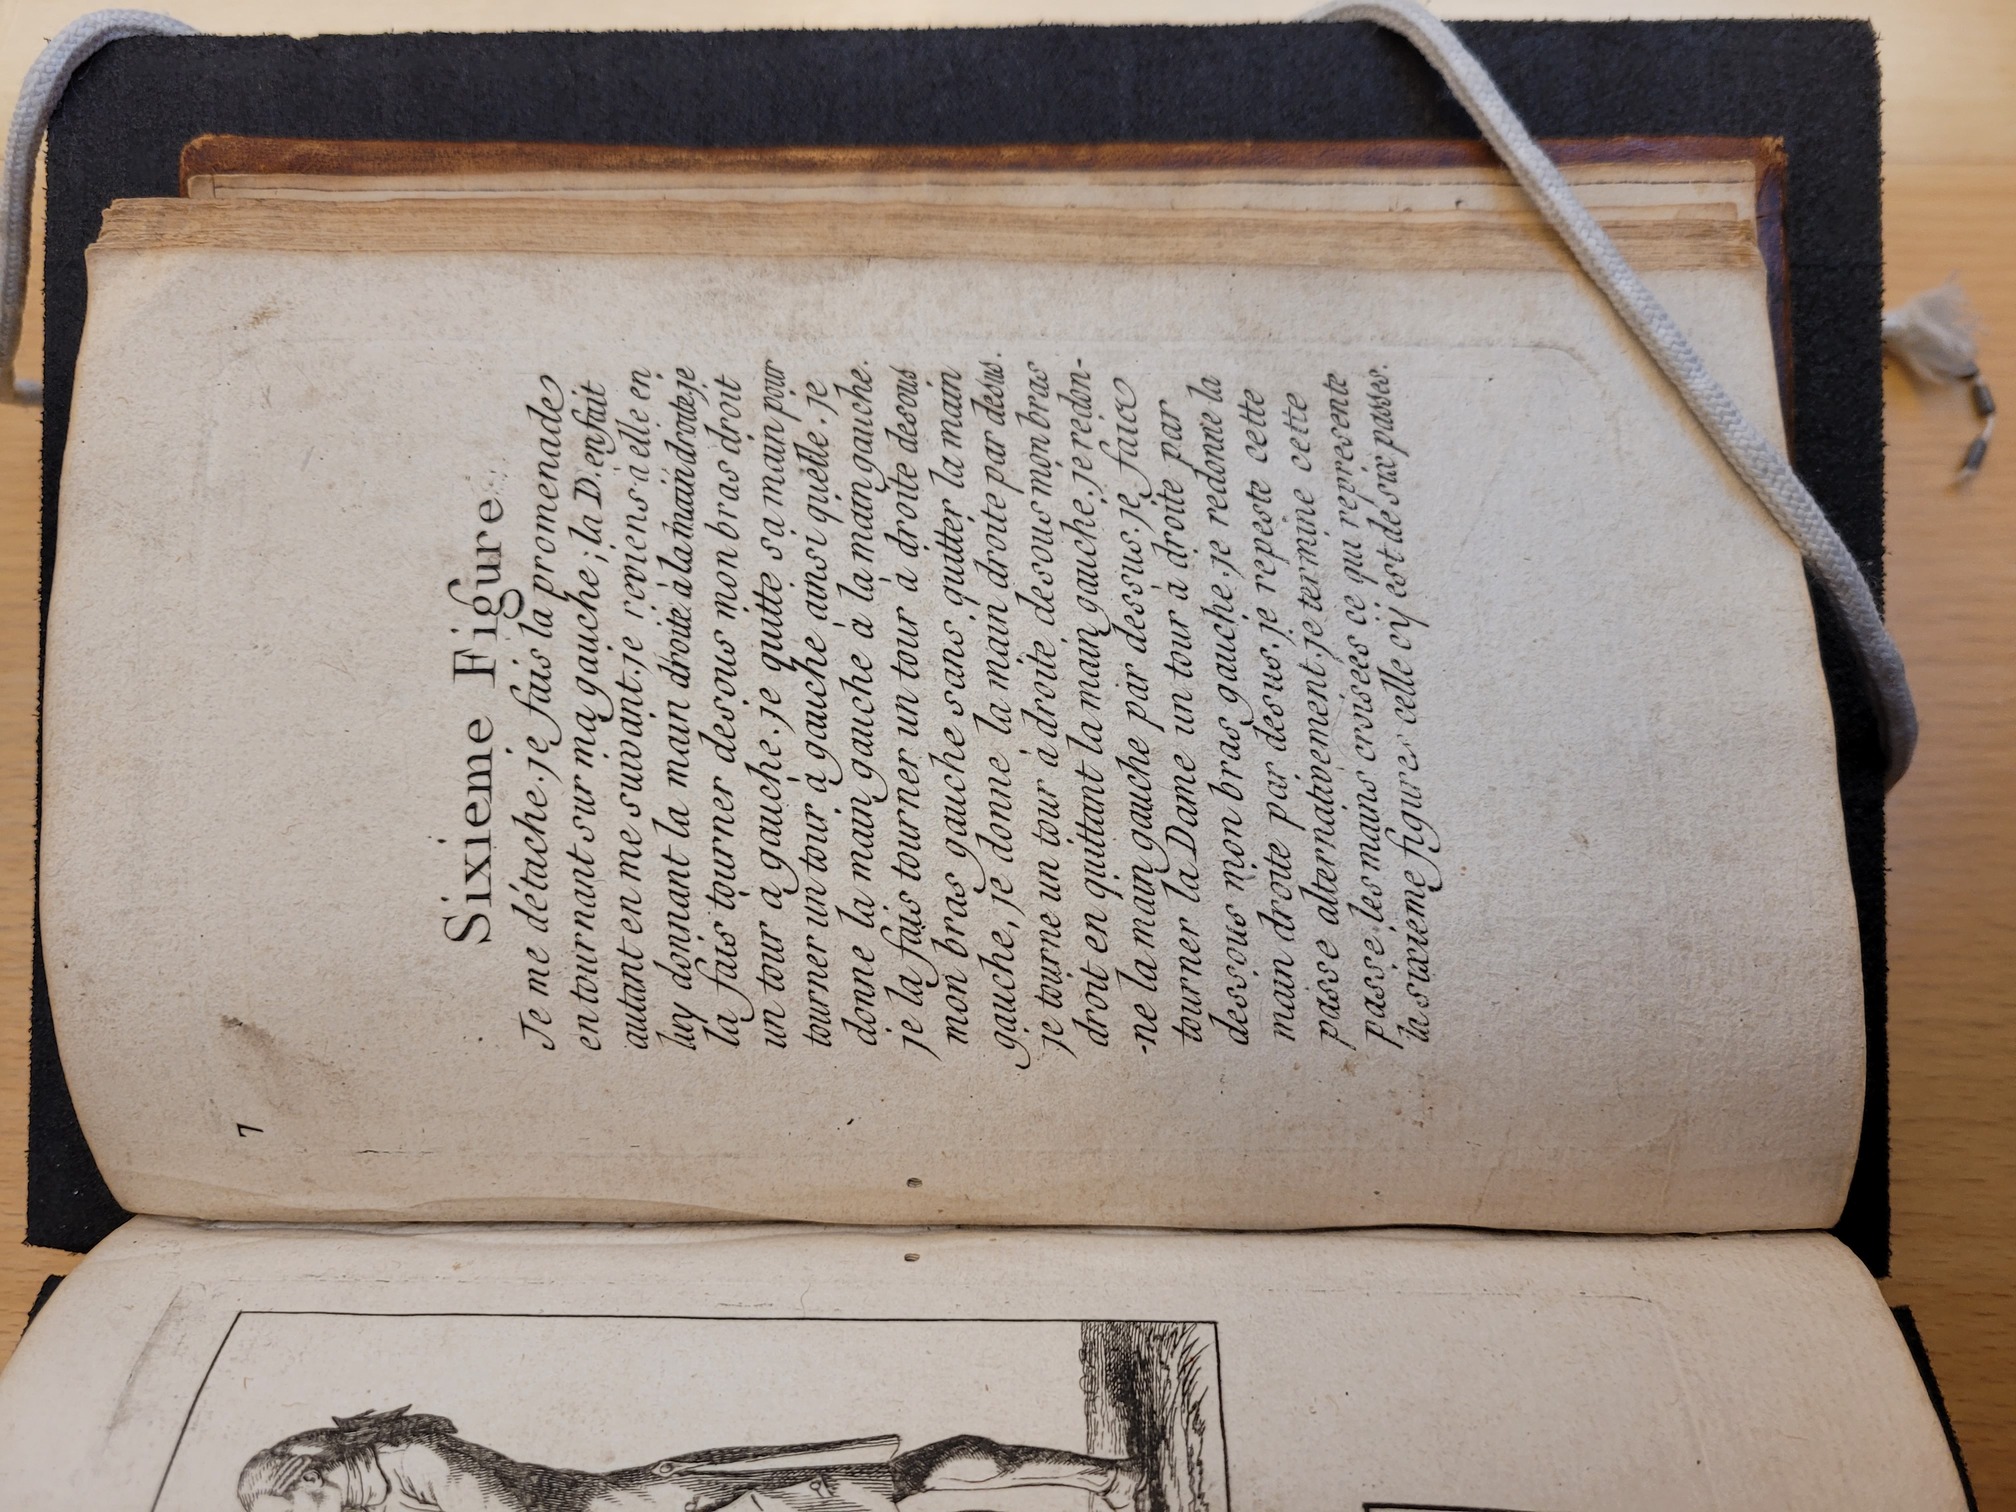 7
Sixieme Figure
Je me détache. je fais la promenade
en tournant sur ma gauche; la D. en fait
autant en me suivant. je reviens à elle en
luy donnant la main droite à la main droite. je
la fais tourner desous mon bras droit
un tour a gauche. je quitte sa main pour
tourner un tour a gauche ainsi quelle. je
donne la main gauche à la main gauche.
je la fais tourner un tour à droite desous
mon bras gauche sans quitter la main
gauche, je donne la main droite par desus.
je tourne un tour à droite desous mon bras
droit en quittant la main gauche. je redon-
-ne la main gauche par dessus. je faice
tourner la Dame un tour à droite par
dessous mon bras gauche. je redonne la
main droite par desus. je repeste cette
passe alternativement. je termine cette
passe les mains croisées ce qui represente
la sixieme figure, celle cy est de six passes.